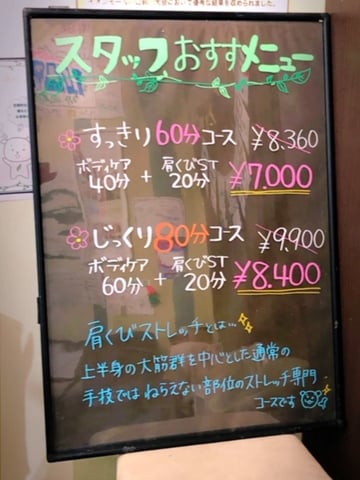 スタッフおすすメニュー
すっきり60分コース ¥8.360
ボディケア 肩くびST
40分 + 20分 ¥7.000
じっくり80分コース ¥9.900
ボディケア 肩くびST
60分 + 20分 ¥8.400
肩くびストレッチとは…
上半身の大筋群を中心とした通常の
手技ではねらえない部位のストレッチ専門
コースです